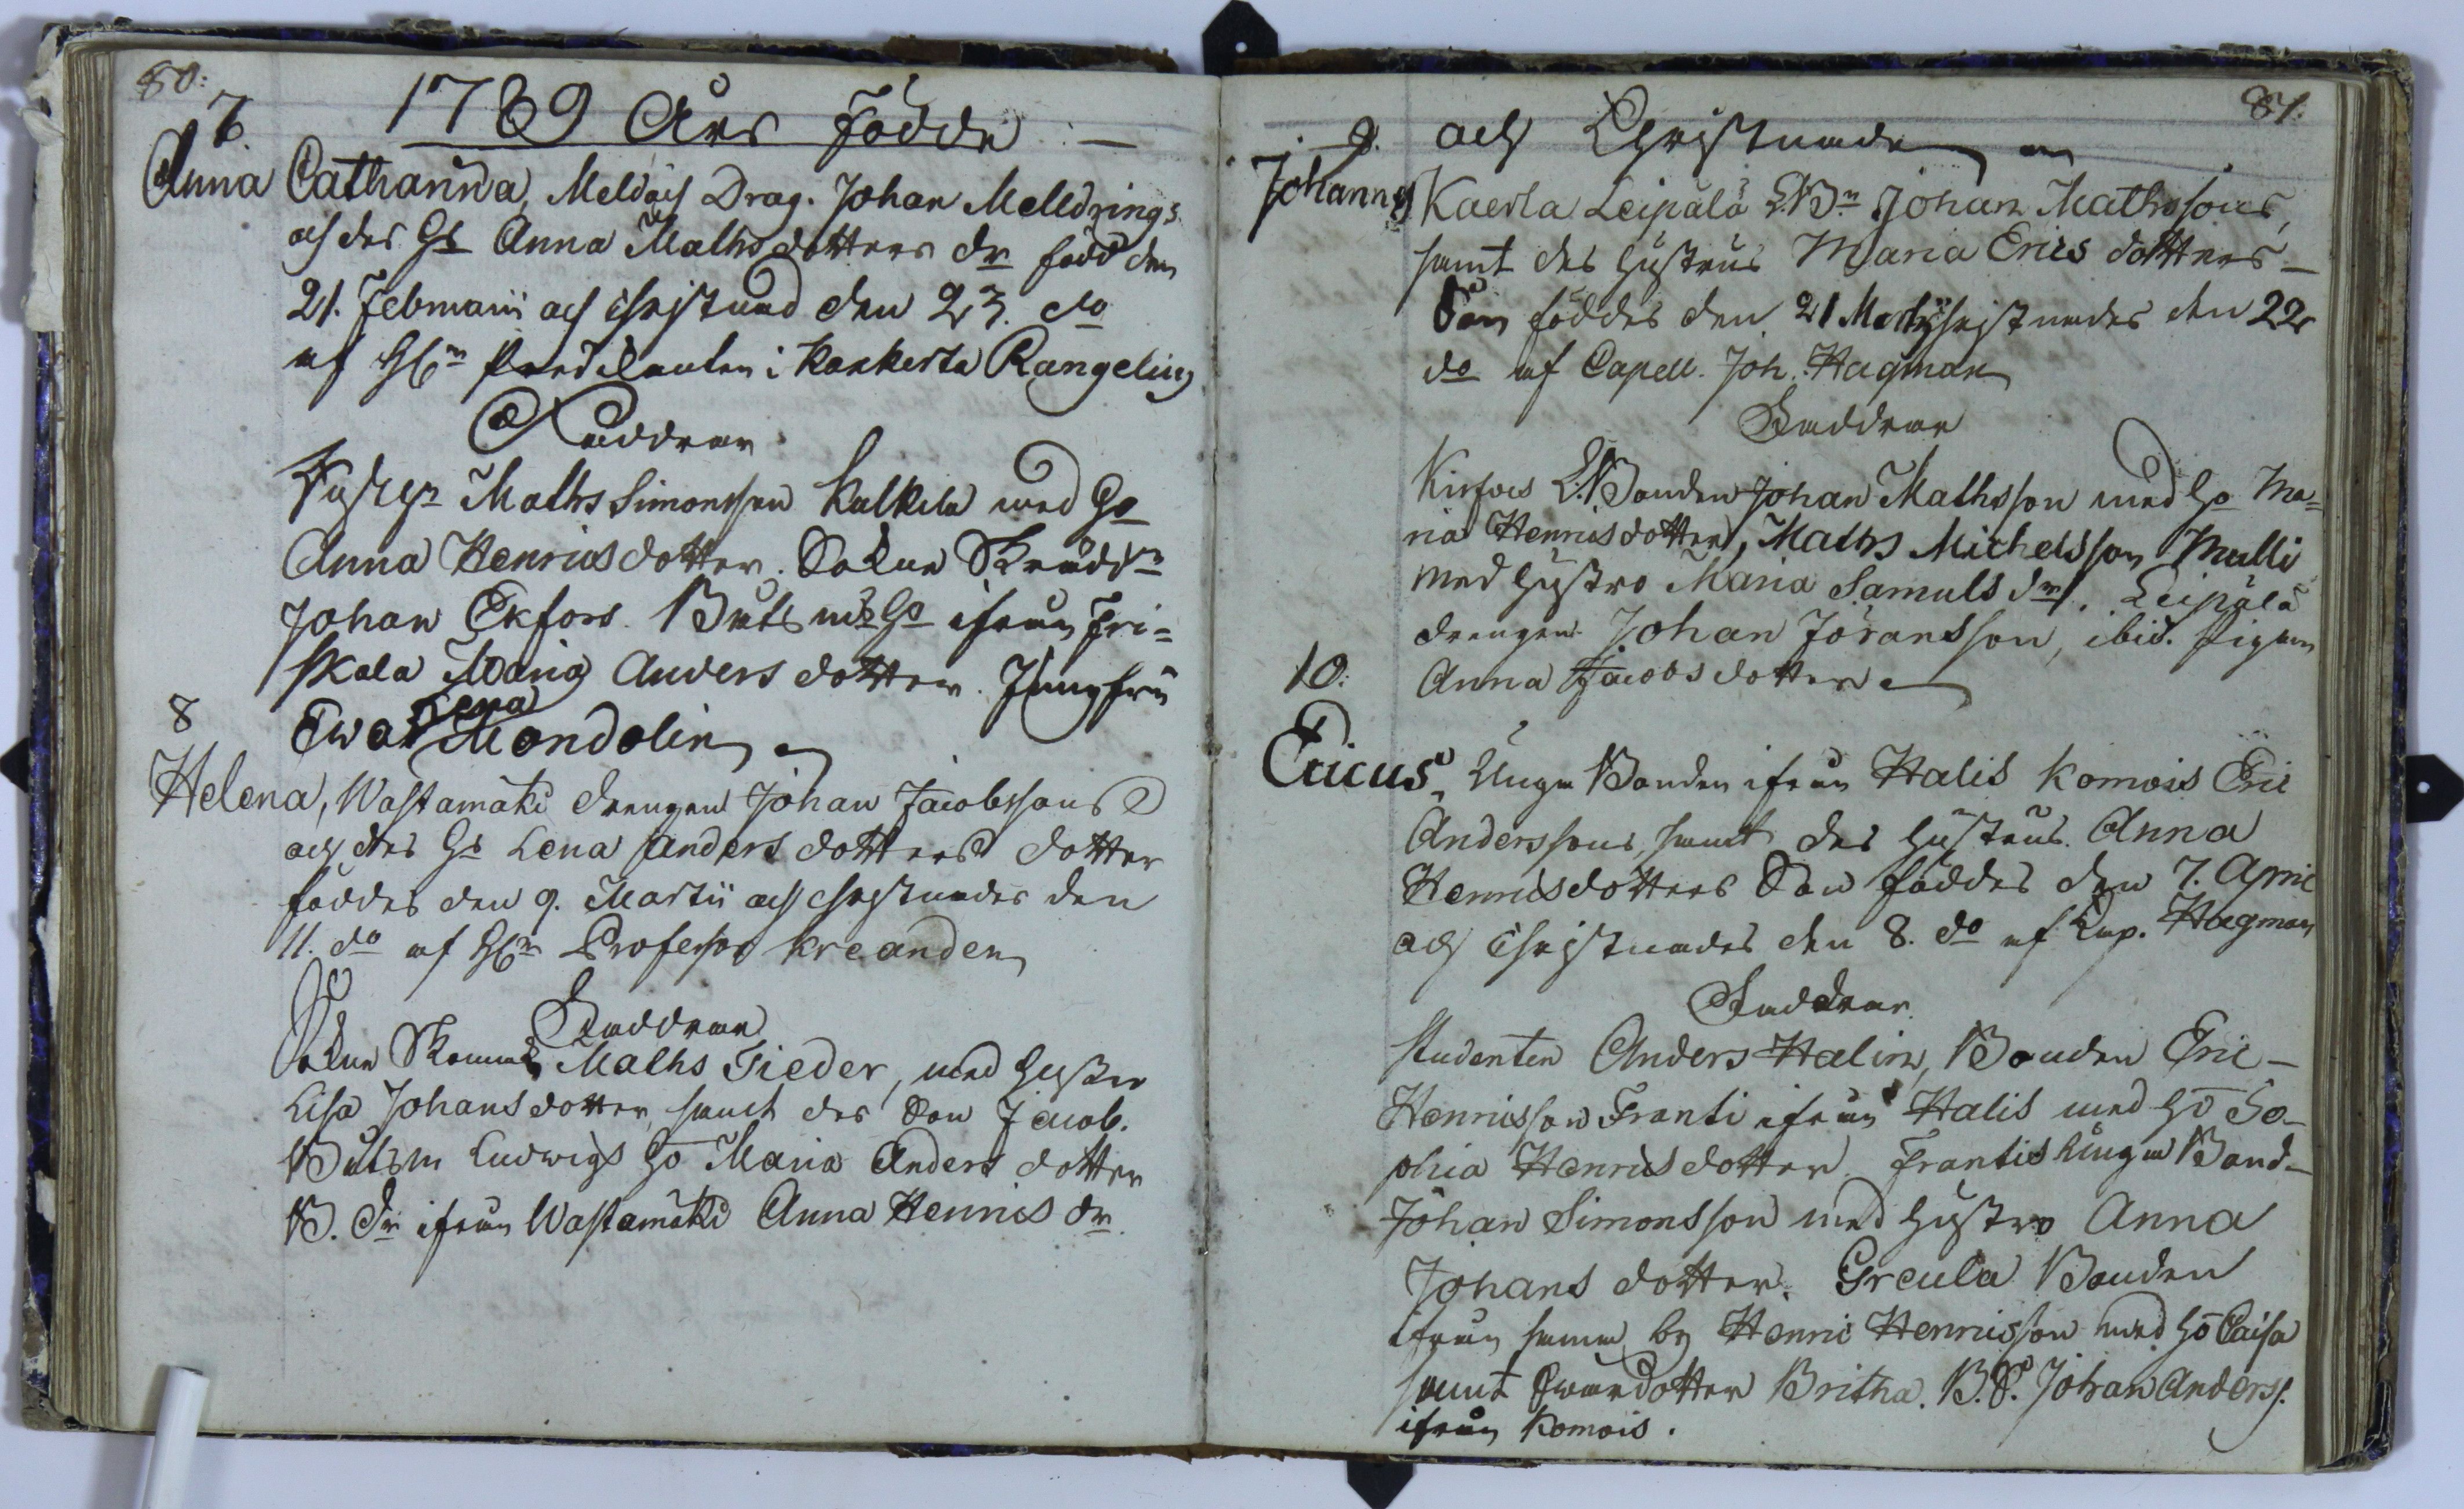 80:
7. 1789 Års Födde
Anna Catharina, Meldois Drag. Johan Melldrings
och des Hs Anna Maths dotters dr född den
21. Februarii och christnad den 23. do
af HEn Predikanten i Kaskerta Rangelin
Faddrar
Maths Simonsson Kulkila med Ho
Anna Henrics dotter. Sokne Skrädn
Johan Ekfors. Båts ms Ho ifrån Fri=
skala Maria Anders dotter. Jungfru
Ewa Lena Mondolin
8
Helena, Wastamäki drengen Johan Jacobssons
och des Hs Lena Anders dotters dotter
föddes den 9. Martii och christnades den
11. do af HEn Professor Kreander
Faddrar
Sokne Skomak Maths Fieder, med hustru
Lisa Johansdotter, samt des Son Jacob.
Båtsm Ludwigs Ho Maria Anders dotter
B. Dr ifrån Wastamäki Anna Henrics dr
81.
9. och Christnade
Johannes Kaerla Leipälä L.Bn Johan Mathssons,
samt des hustrus Maria Erics dotters
Son föddes den 21 Martii christnades den 22
do af Capell. Joh. Hagman
Faddrar
L.Bonden Johan Mathsson med Ho Ma=
ria Henricsdotter, Maths Michelsson Mulli
med hustro Maria Samuels dr. Leipälä
drengen Johan Göransson, ibid. Pigan
Anna Jacobsdotter
10.
Ericus, Unga Bonden ifrån Halis Komois Eric
Anderssons, samt des hustrus Anna
Henricsdotters Son föddes den 7. April
och christnades den 8. do af Cap. Hagman
Faddrar
Studenten Anders Halin, Bonden Eric
Henricsson Franti ifrån Halis med Ho So=
phia Henricsdotter. Frantis Unga Bond
Johan Simonsson med hustro Anna
Johans dotter. Grcula Bonden
ifrån samma by Henric Henricsson med Ho Caisa
samt Swärdotter Britha. B.S. Johan Anderss.
ifrån Komois.